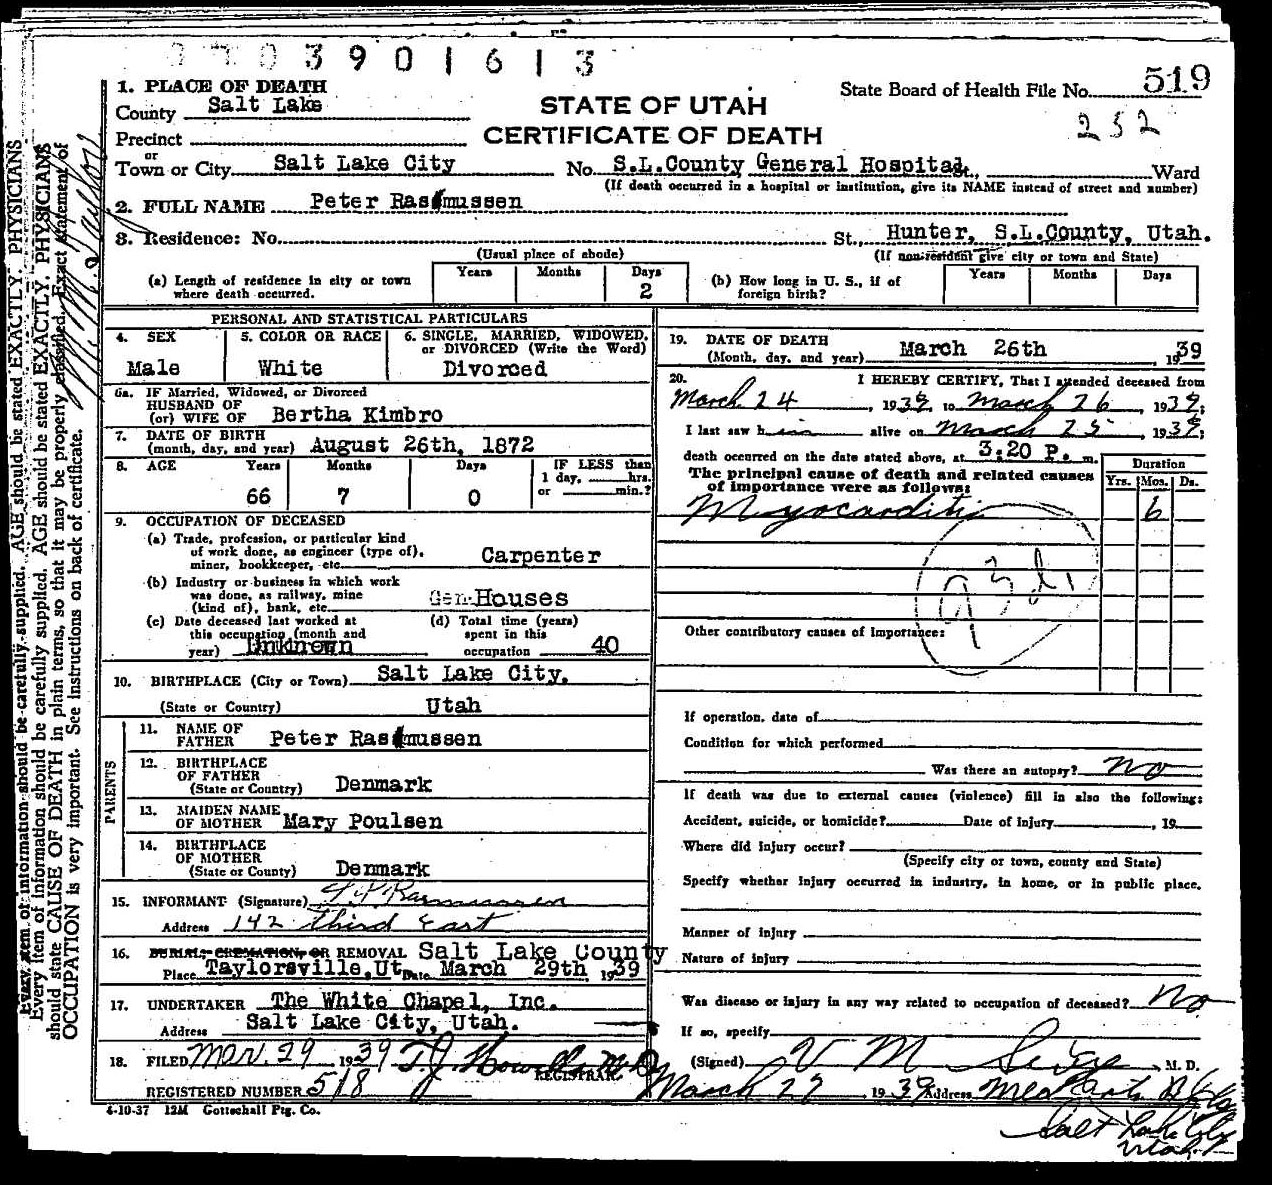 3901613
1. PLACE OF DEATH
County Salt Lake
STATE OF UTAH
CERTIFICATE OF DEATH
State Board of Health File No. 519
252
Precinct
or
Town or City Salt Lake City No. S.L.County General Hospital St., Ward
(If death occurred in a hospital or institution, give its NAME instead of street and number)
2. FULL NAME Peter Rasmussen
3. Residence: No. St., Hunter, S.L.County, Utah.
(Usual place of abode) (If non-resident give city or town and State)
(a) Length of residence in city or town where death occurred. Years Months Days 2
(b) How long in U. S., if of foreign birth? Years Months Days
PERSONAL AND STATISTICAL PARTICULARS
4. SEX Male
5. COLOR OR RACE White
6. SINGLE, MARRIED, WIDOWED, or DIVORCED (Write the Word) Divorced
6a. IF Married, Widowed, or Divorced
HUSBAND OF
(or) WIFE OF Bertha Kimbro
7. DATE OF BIRTH
(month, day, and year) August 26th, 1872
8. AGE Years Months Days IF LESS than
1 day, hrs.
or min.?
66 7 0
9. OCCUPATION OF DECEASED
(a) Trade, profession, or particular kind
of work done, as engineer (type of),
miner, bookkeeper, etc. Carpenter
(b) Industry or business in which work
was done, as railway, mine
(kind of), bank, etc. Gen. Houses
(c) Date deceased last worked at
this occupation (month and
year) Unknown
(d) Total time (years)
spent in this
occupation 40
10. BIRTHPLACE (City or Town) Salt Lake City,
(State or Country) Utah
PARENTS
11. NAME OF
FATHER Peter Rasmussen
12. BIRTHPLACE
OF FATHER
(State or Country) Denmark
13. MAIDEN NAME
OF MOTHER Mary Poulsen
14. BIRTHPLACE
OF MOTHER
(State or Country) Denmark
15. INFORMANT (Signature) Rasmussen
Address 142 third East
16. BURIAL, CREMATION, OR REMOVAL Salt Lake County
Place Taylorsville, Ut Date March 29th 1939
17. UNDERTAKER The White Chapel, Inc.
Address Salt Lake City, Utah.
18. FILED Mar. 29 1939 T.J. Howells M D
REGISTRAR
REGISTERED NUMBER 518
4-10-37 12M Gottschall Ptg. Co.
19. DATE OF DEATH
(Month, day, and year) March 26th 1939
20. I HEREBY CERTIFY, That I attended deceased from
March 24, 1939, to March 26, 1939;
I last saw him alive on March 25, 1939;
death occurred on the date stated above, at 3:20 P. m.
The principal cause of death and related causes
of importance were as follows:
Duration
Yrs. Mos. Ds.
Myocarditis 6
93d.
Other contributory causes of importance:
If operation, date of
Condition for which performed
Was there an autopsy? No
If death was due to external causes (violence) fill in also the following:
Accident, suicide, or homicide? Date of injury , 19
Where did injury occur?
(Specify city or town, county and State)
Specify whether injury occurred in industry, in home, or in public place.
Manner of injury
Nature of injury
Was disease or injury in any way related to occupation of deceased? No
If so, specify
(Signed) V M , M. D.
March 27 1939 Address Med Arts Bldg
Salt Lake City
Utah.
Every item of information should be carefully supplied. AGE should be stated EXACTLY. PHYSICIANS
should state CAUSE OF DEATH in plain terms, so that it may be properly classified. Exact statement of
OCCUPATION is very important. See instructions on back of certificate.